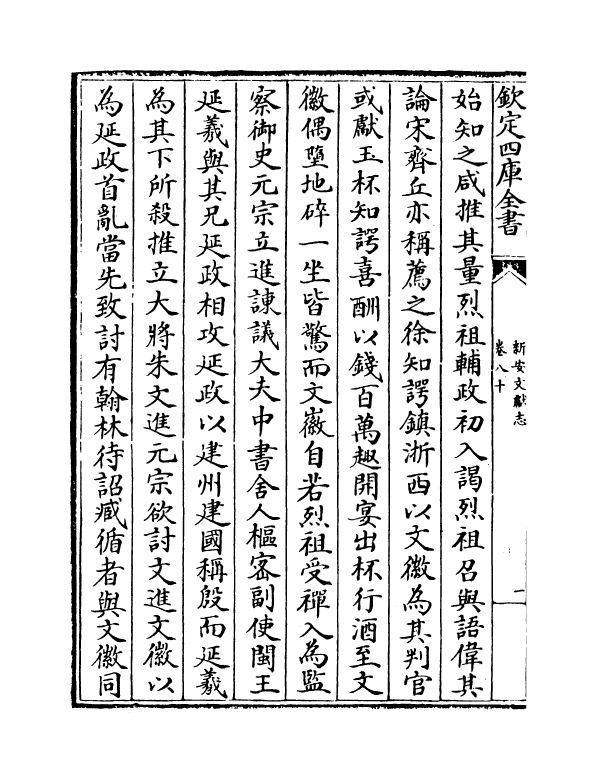 欽定四庫全書
新安文獻志
卷八十
二
始知之咸推其量烈祖輔政初入謁烈祖召與語偉其
論宋齊丘亦稱薦之徐知諤鎮浙西以文徽為其判官
或獻玉杯知諤喜酬以錢百萬趣開宴出杯行酒至文
徽偶墮地碎一坐皆驚而文徽自若烈祖受禪入為監
察御史元宗立進諌議大夫中書舍人樞密副使閩王
延羲與其兄延政相攻延政以建州建國稱殷而延羲
為其下所殺推立大將朱文進元宗欲討文進文徽以
為延政首亂當先致討有翰林待詔臧循者與文徽同